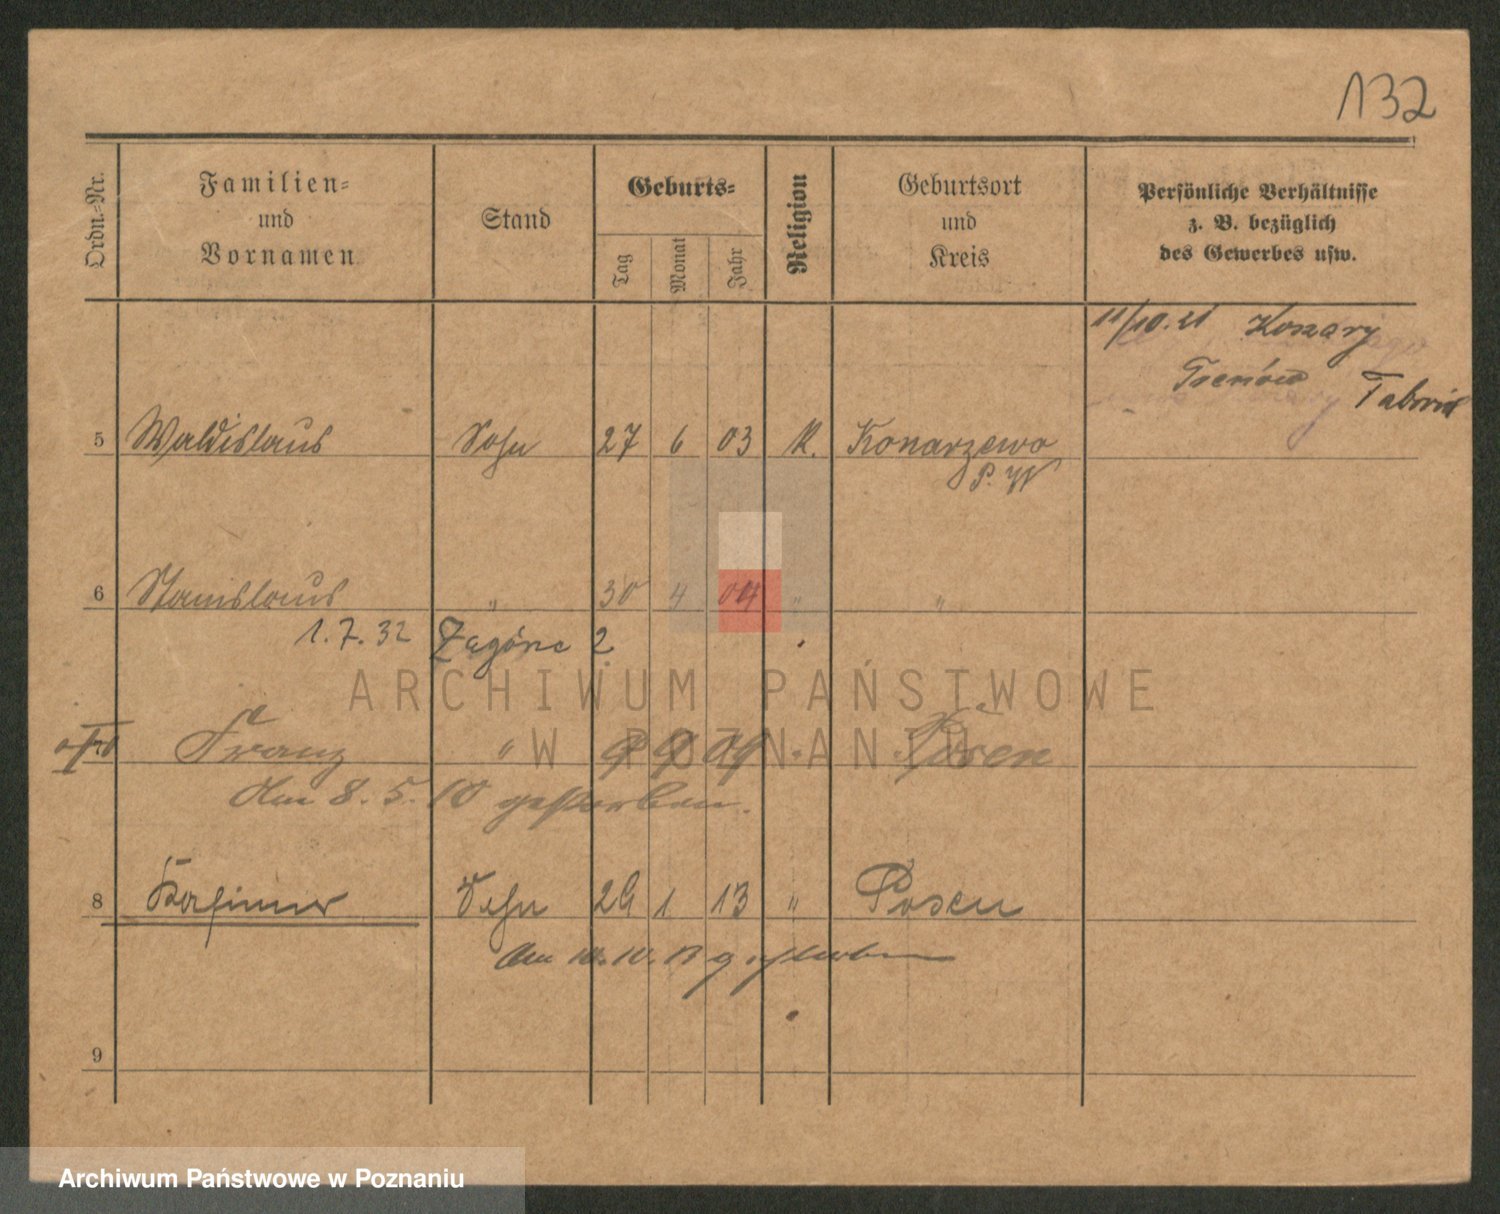 132
Ordn.-Nr.
Familien-
und
Vornamen
Stand
Geburts-
Tag
Monat
Jahr
Religion
Geburtsort
und
Kreis
Persönliche Verhältnisse
z. B. bezüglich
des Gewerbes usw.
11/10.21 Koszary
Taborów
5 Waldislaus Sohn 27 6 03 K. Konarzewo
P. W
6 Stanislaus " 30 4 04 " "
1.7.32 Zagórze 2
Franz " 9 9 09 Posen
Am 8. 5. 10 gestorben.
8 Kasimir Sohn 29 1 13 " Posen
Am 10. 10. 13 gestorben
9
ARCHIWUM PAŃSTWOWE
W POZNANIU
Archiwum Państwowe w Poznaniu